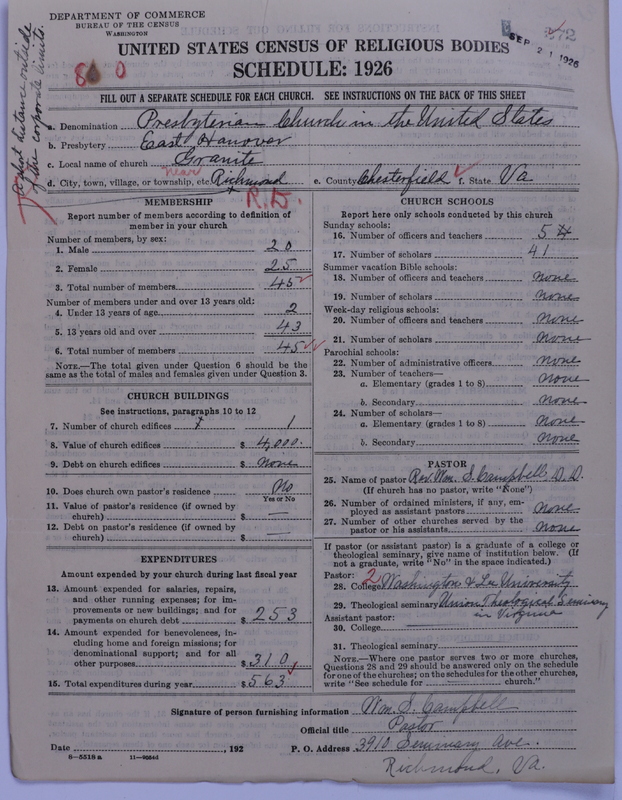 DEPARTMENT OF COMMERCE
BUREAU OF THE CENSUS
WASHINGTON
SEP 21 1926
UNITED STATES CENSUS OF RELIGIOUS BODIES
SCHEDULE: 1926
8 0
FILL OUT A SEPARATE SCHEDULE FOR EACH CHURCH. SEE INSTRUCTIONS ON THE BACK OF THIS SHEET
a short distance outside
of the corporate limits.
a. Denomination Presbyterian Church in the United States
b. Presbytery East Hanover
c. Local name of church Granite
near
d. City, town, village, or township, etc. Richmond e. County Chesterfield f. State Va
R.D.
MEMBERSHIP
Report number of members according to definition of
member in your church
Number of members, by sex:
1. Male 20
2. Female 25
3. Total number of members 45
Number of members under and over 13 years old:
4. Under 13 years of age 2
5. 13 years old and over 43
6. Total number of members 45
NOTE.—The total given under Question 6 should be the
same as the total of males and females given under Question 3.
CHURCH BUILDINGS
See instructions, paragraphs 10 to 12
7. Number of church edifices 1
8. Value of church edifices $ 4,000
9. Debt on church edifices $ None
10. Does church own pastor's residence No
Yes or No
11. Value of pastor's residence (if owned by
church) $ —
12. Debt on pastor's residence (if owned by
church) $ —
EXPENDITURES
Amount expended by your church during last fiscal year
13. Amount expended for salaries, repairs,
and other running expenses; for im-
provements or new buildings; and for
payments on church debt $ 253
14. Amount expended for benevolences, in-
cluding home and foreign missions; for
denominational support; and for all
other purposes $ 310
15. Total expenditures during year $ 563
CHURCH SCHOOLS
Report here only schools conducted by this church
Sunday schools:
16. Number of officers and teachers 5
17. Number of scholars 41
Summer vacation Bible schools:
18. Number of officers and teachers None
19. Number of scholars None
Week-day religious schools:
20. Number of officers and teachers None
21. Number of scholars None
Parochial schools:
22. Number of administrative officers None
23. Number of teachers—
a. Elementary (grades 1 to 8) None
b. Secondary None
24. Number of scholars—
a. Elementary (grades 1 to 8) None
b. Secondary None
PASTOR
25. Name of pastor Rev. Wm. S. Campbell, D. D.
(If church has no pastor, write "None")
26. Number of ordained ministers, if any, em-
ployed as assistant pastors None
27. Number of other churches served by the
pastor or his assistants None
If pastor (or assistant pastor) is a graduate of a college or
theological seminary, give name of institution below. (If
not a graduate, write "No" in the space indicated.)
Pastor: 2
28. College Washington & Lee University
29. Theological seminary Union Theological Seminary
in Virginia
Assistant pastor:
30. College
31. Theological seminary
NOTE.—Where one pastor serves two or more churches,
Questions 28 and 29 should be answered only on the schedule
for one of the churches; on the schedules for the other churches,
write "See schedule for church."
Signature of person furnishing information Wm. S. Campbell
Official title Pastor
Date , 192 P. O. Address 3910 Seminary Ave.
Richmond, Va.
8—5518 a